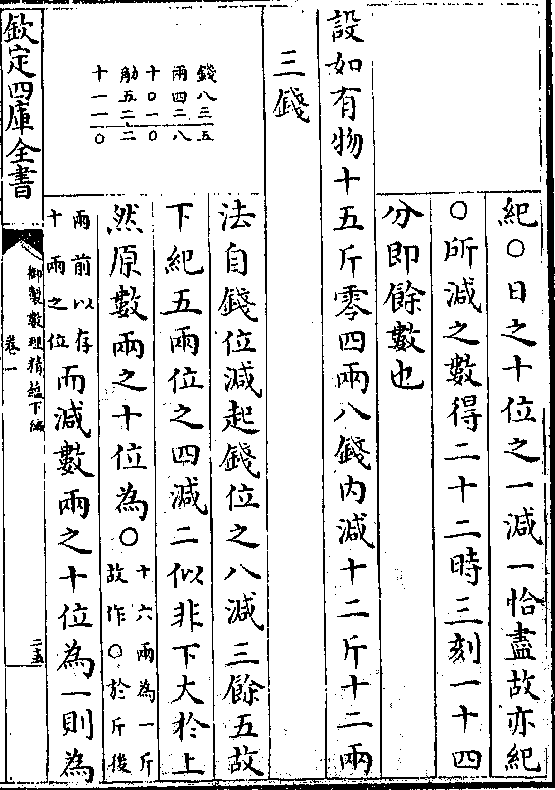 紀〇日之十位之一減一恰盡故亦紀
〇所減之數得二十二時三刻一十四
分即餘數也
設如有物十五斤零四兩八錢內減十二斤十二兩
三錢
錢八三五
兩四二八
十〇一〇
觔五二二
十一一〇
法自錢位減起錢位之八減三餘五故
下紀五兩位之四減二似非下大於上
然原數兩之十位為〇十六兩為一斤故作〇於斤後
兩前以存十兩之位而減數兩之十位為一則為
欽定四庫全書
御製數理精蘊下編
卷一
二五